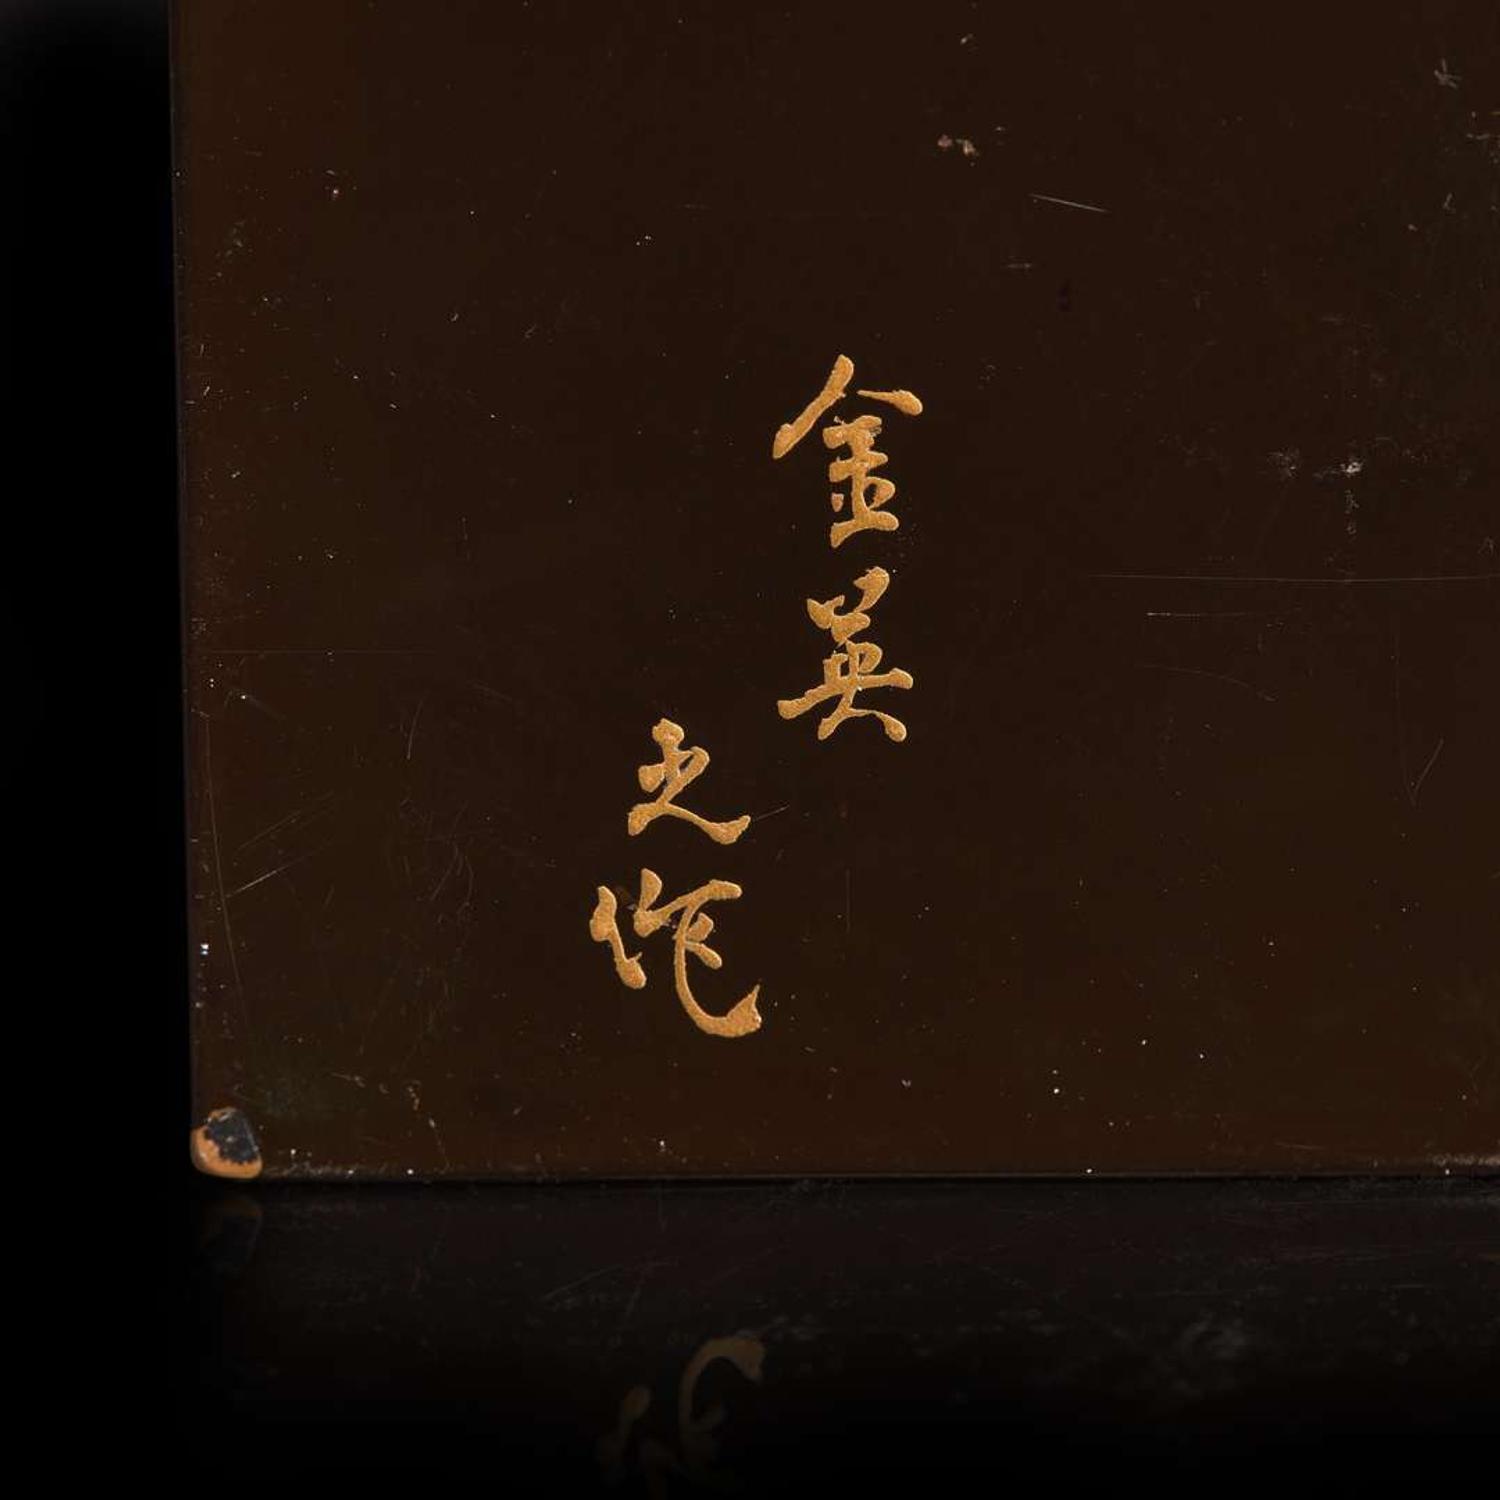 金英
之作